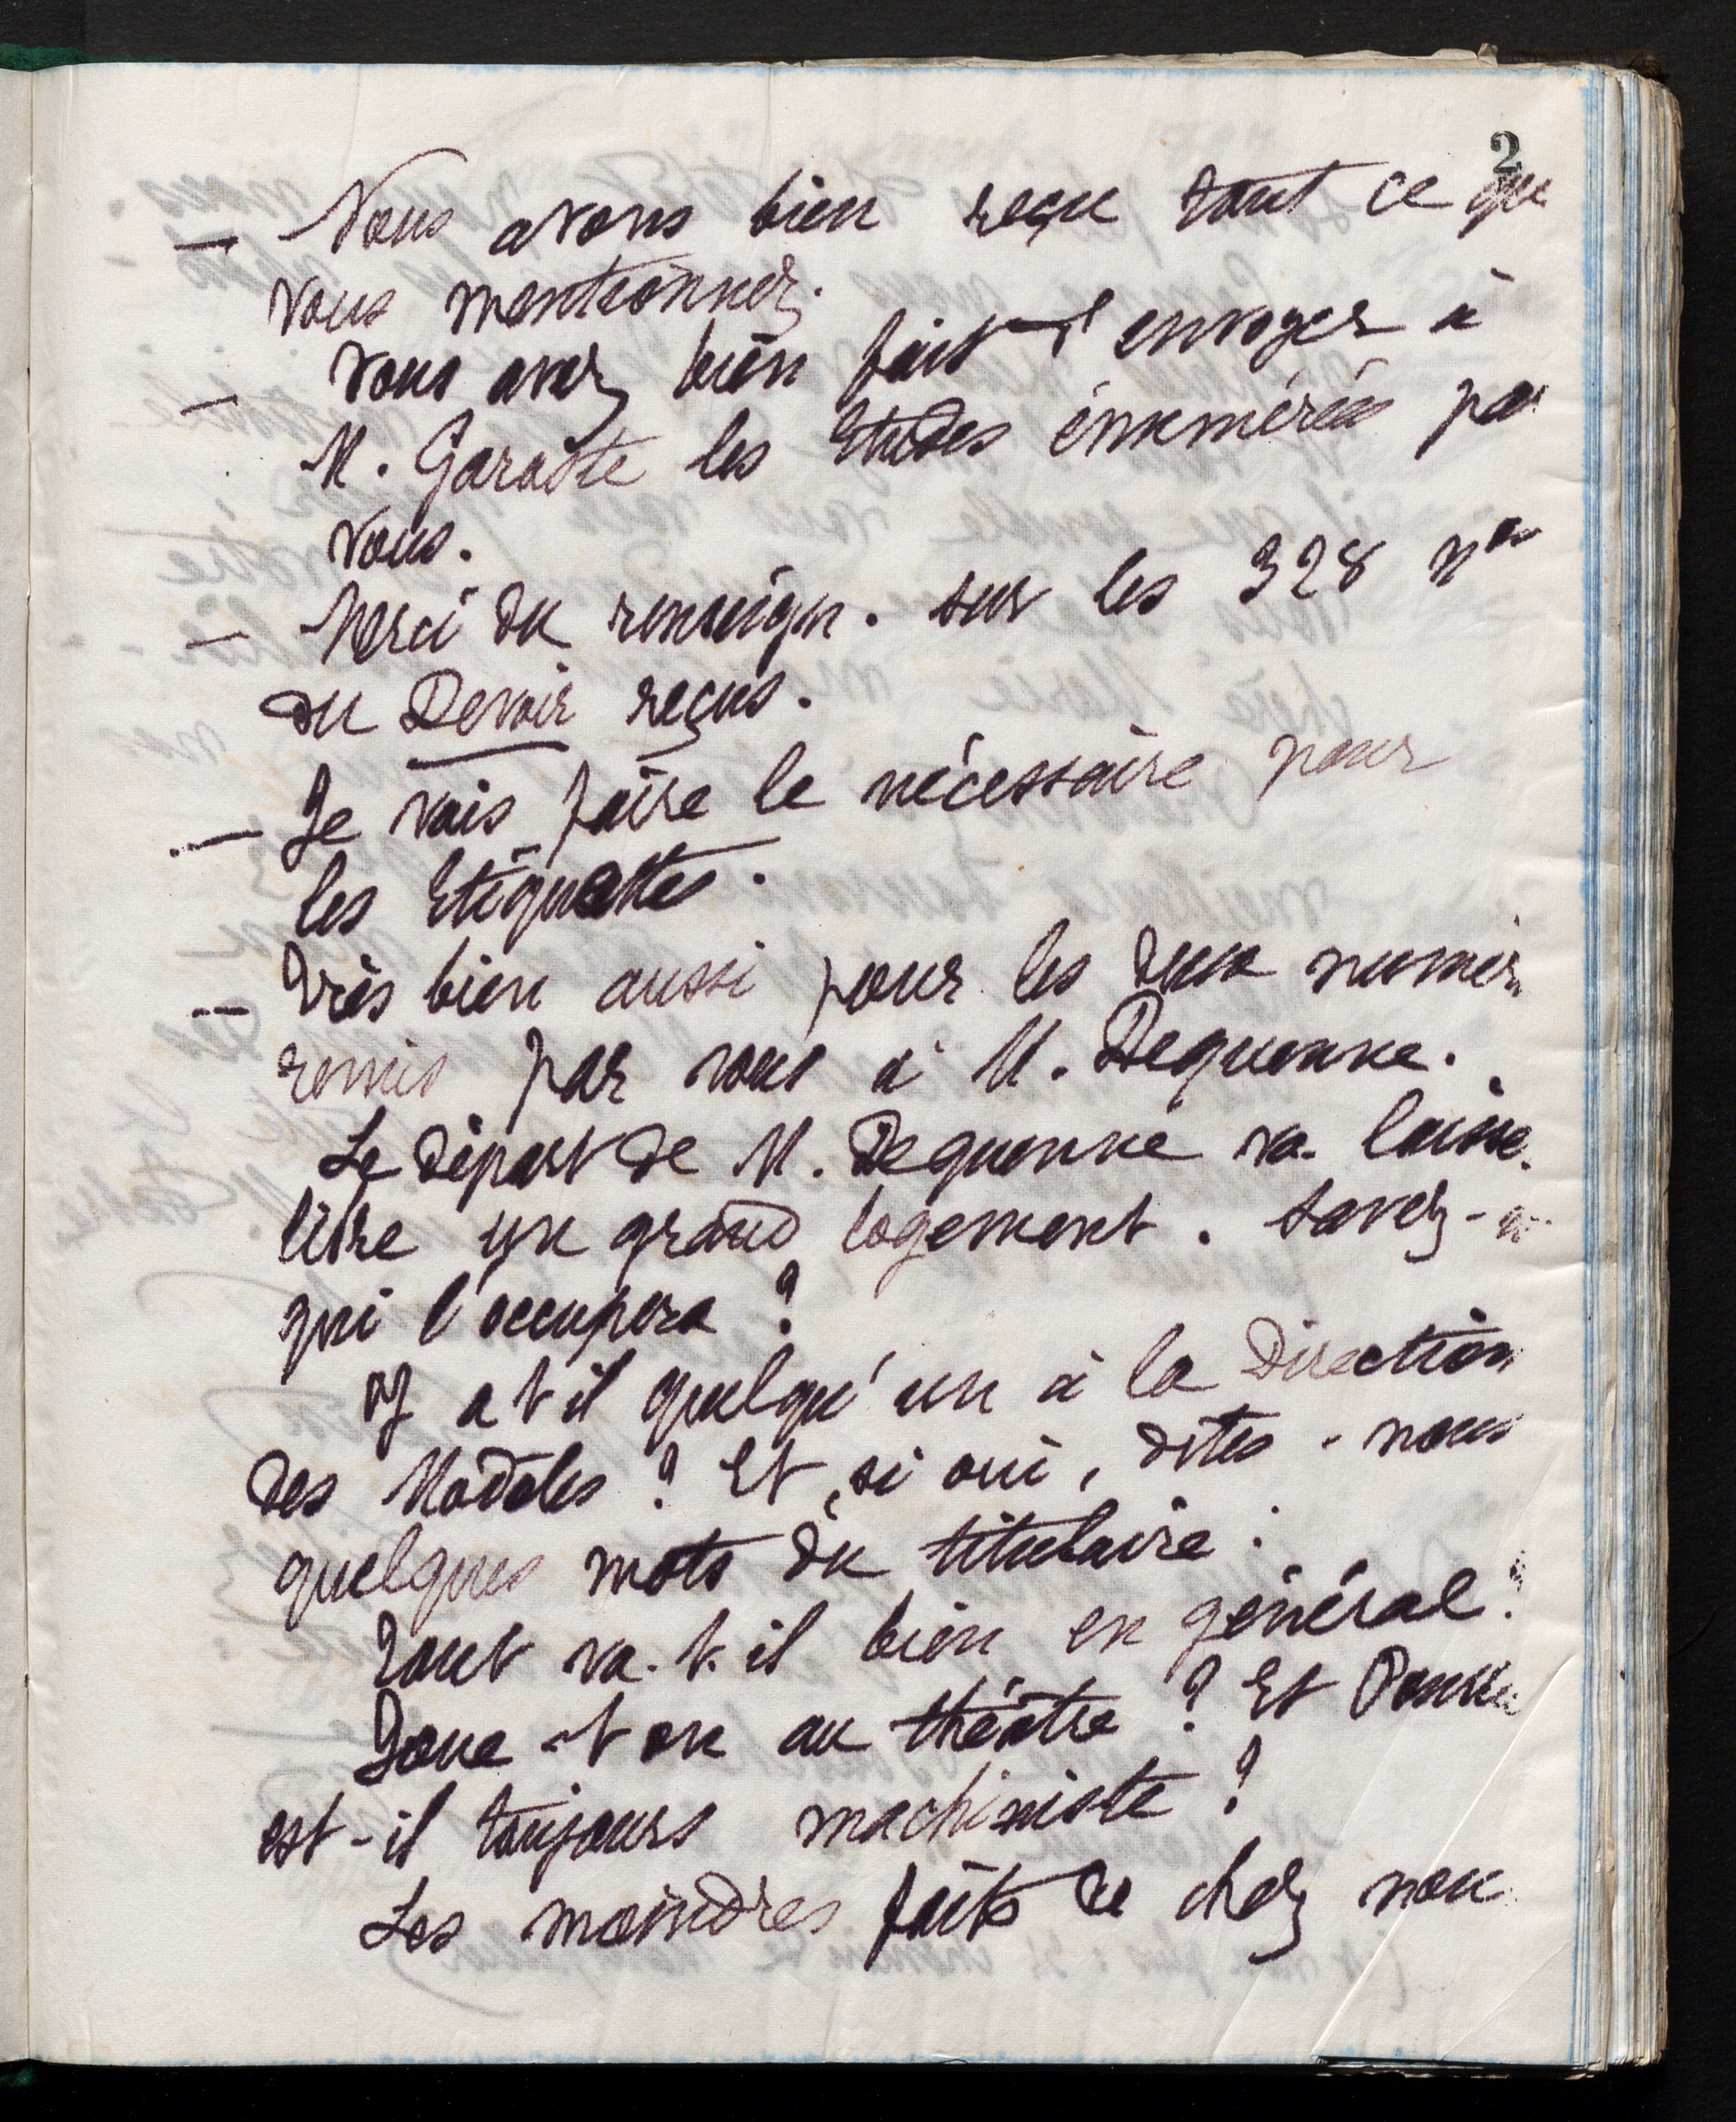 2
— Nous avons bien reçu tout ce que
vous mentionnez.
— Vous avez bien fait d'envoyer à
M. Garaite les Etudes énumérées par
vous.
— Merci du renseign. sur les 328 nos
du Devoir reçus.
— Je vais faire le nécessaire pour
les Etiquettes.
— Très bien aussi pour les deux
remis par vous à M. Dequenne.
Le départ de M. Dequenne va laisse
libre un grand logement. Savez-
qui l'occupera ?
Y a t il quelqu'un à la Direction
des Modèles ? Et, si oui, dites-nous
quelques mots du titulaire.
Tout va-t-il bien en général ?
Joue-t on au théâtre ? Et
est-il toujours machiniste ?
Les moindres faits de chez nou